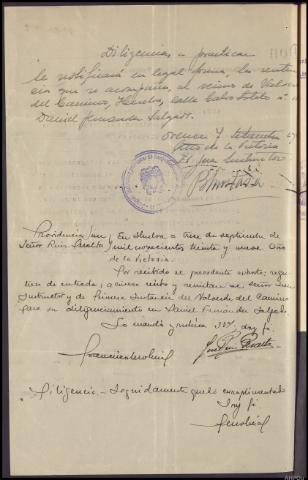 Diligencias a practicar
le notificará en legal forma, la senten
cia que se acompaña, al vecino de Valverde
del Camino, Huelva, calle Calvo Sotelo nº
Daniel Fernandez Salgado.
7 Septiembre
Año de la Victoria
El Juez Instructor
Providencia Juez
Señor Ruiz Peralto
En Huelva a trece de septiembre de
mil novecientos treinta y nueve Año
de la Victoria.
Por recibido el precedente exhorto; regis
tren de entrada, acúsese recibo y remítase al señor Juez
Instructor y de Primera Instancia de Valverde del Camino
para su diligenciamiento en Daniel Fernandez Salgado
Lo mandó y rubrica SSª; doy fé.
Diligencia - Seguidamente queda cumplimentado
Doy fé